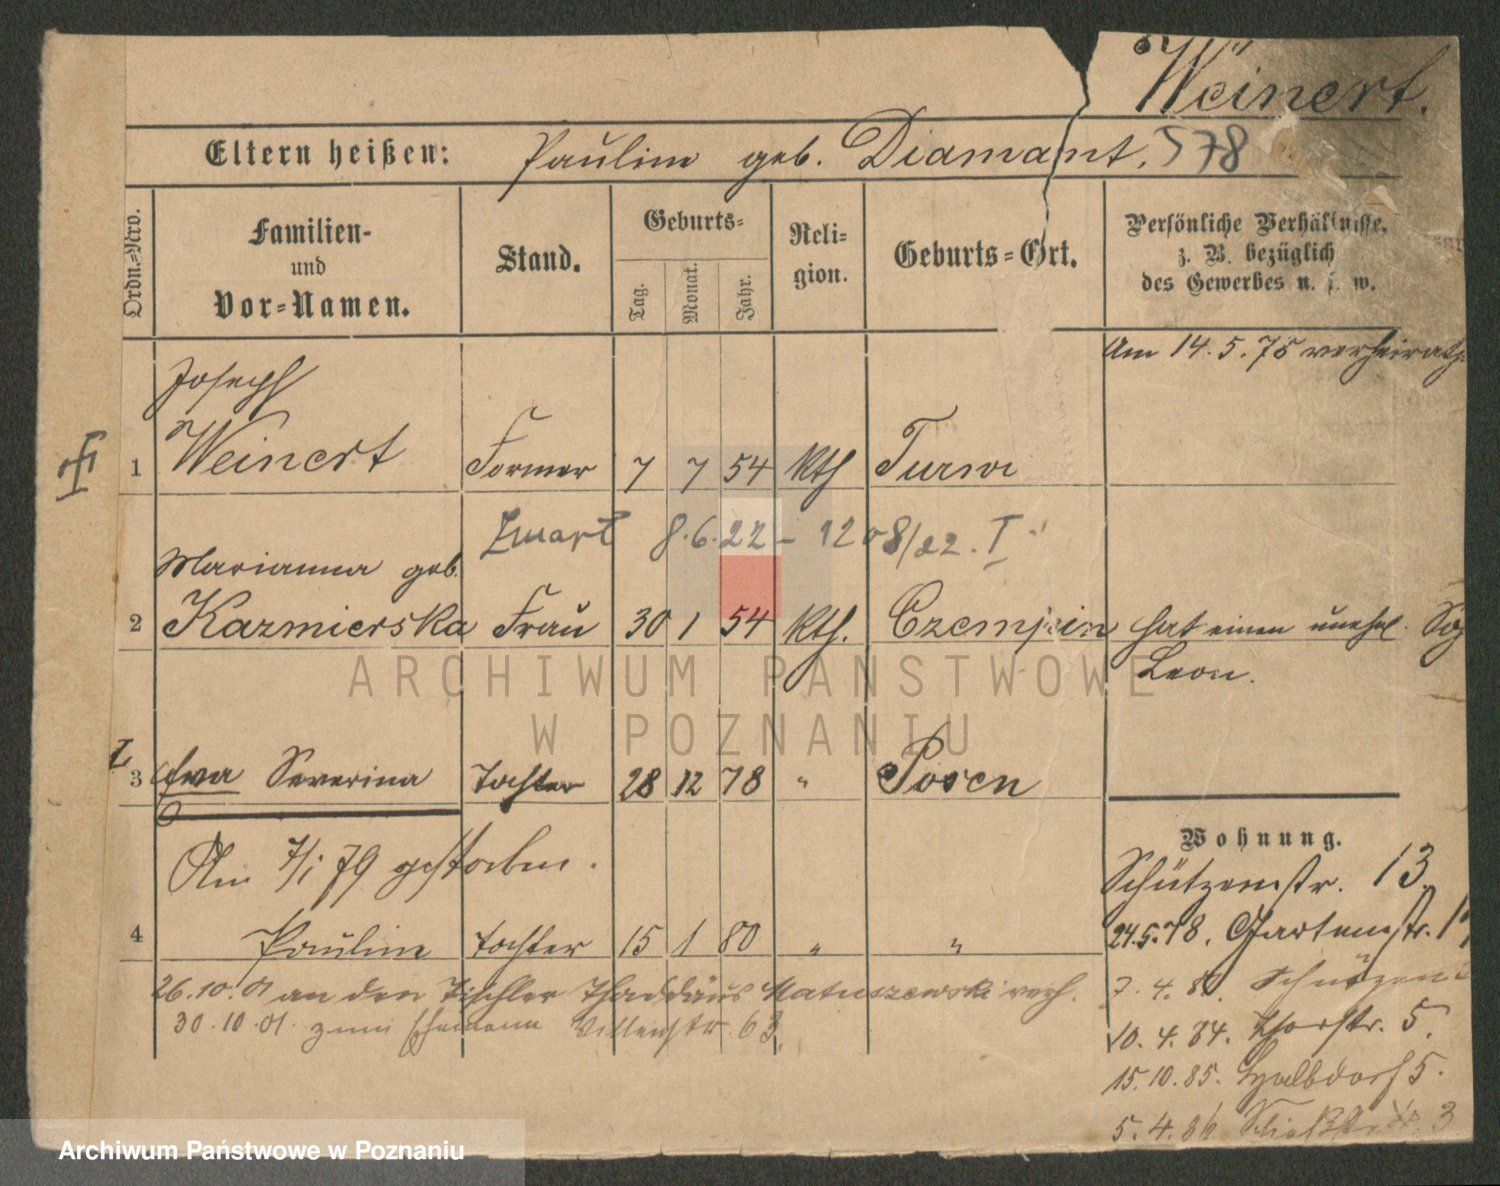 Weinert.
Eltern heißen: Pauline geb. Diamant. 578
Ordn.-Nro.
Familien-
und
Vor-Namen.
Stand.
Geburts-
Tag.
Monat.
Jahr.
Reli-
gion.
Geburts-Ort.
Persönliche Verhältnisse,
z. B. bezüglich
des Gewerbes u. s. w.
Am 14.5.78 verheirath.
Joseph
1 Weinert Former 7 7 54 kth Turwi
Zmarł 8.6.22 - 1208/22. I
Marianna geb.
2 Kazmierska Frau 30 1 54 kth. Czempin hat einen unehel.
Leon.
3 Ewa Severina Tochter 28 12 78 " Posen
Am 7/1 79 gestorben.
4 Pauline Tochter 15 1 80 " "
26.10.01 an den Tischler Thaddäus Matuszewski verh.
30.10.01. zum Ehemann Villenstr. 63.
Wohnung.
Schützenstr. 13.
24.5.78. Gartenstr.
7.4.80. Schützen
10.4.84. Thorstr. 5.
15.10.85. Halbdorf 5.
5.4.86. 3
ARCHIWUM PAŃSTWOWE
W POZNANIU
Archiwum Państwowe w Poznaniu